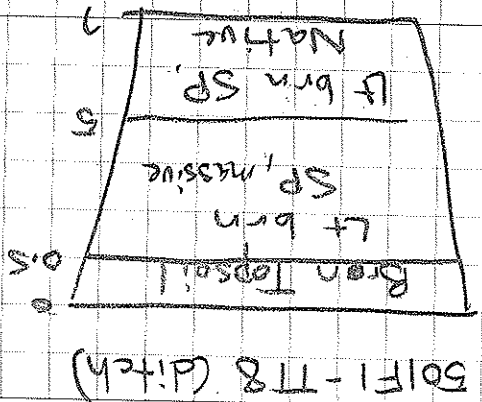 501F1-TT8 (ditch)
0
Bron Topsoil
0.5
Lt brn
SP, massive
5
Lt brn SP,
Native
7